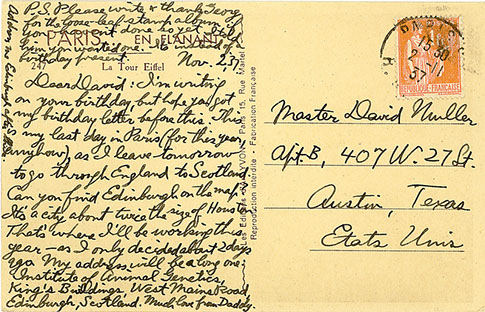 P.S. Please write & thank George
for the loose-leaf stamp album if
you haven't done so yet. I told
him you wanted one. It's a sort of
birthday present.
PARIS ... EN FLANANT
247
La Tour Eiffel
Nov. 2, 37
Dear David: I'm writing
on your birthday, but hope you got
my birthday letter before this. This is
my last day in Paris (for this year,
anyhow), as I leave tomorrow
to go through England to Scotland.
Can you find Edinburgh on the map?
It's a city about twice the size of Houston.
That's where I'll be working this
year — as I only decided about 2 days
ago. My address will be a long one:
Institute of Animal Genetics,
King's Buildings, West Mains Road,
Edinburgh, Scotland. Much love from Daddy.
Les Editions d'Art YVON, Paris 15, Rue Martel
Reproduction interdite - Fabrication Française
PARIS
15 30
2-11
37
REPUBLIQUE FRANÇAISE
Master David Muller
Apt. B, 407 W. 27 St.
Austin, Texas
Etats Unis